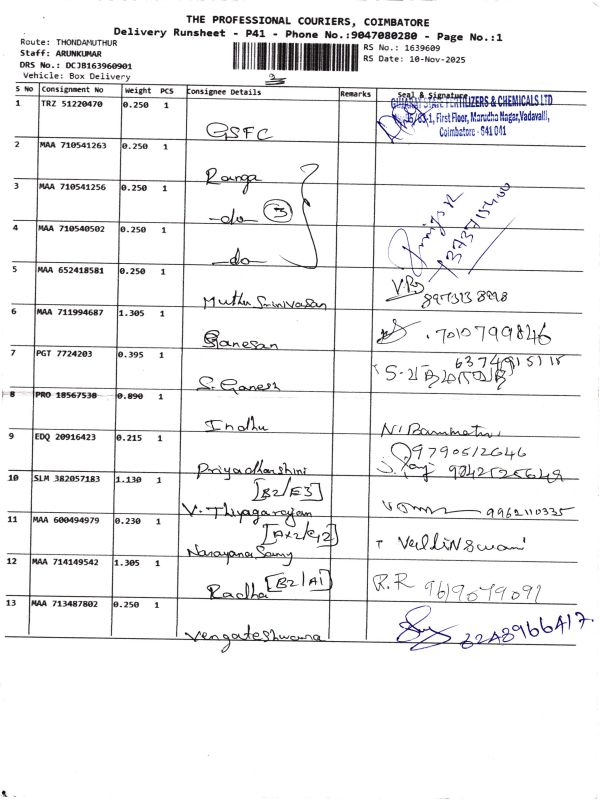 THE PROFESSIONAL COURIERS, COIMBATORE
Delivery Runsheet - P41 - Phone No.:9047080280 - Page No.:1
Route: THONDAMUTHUR
RS No.: 1639609
Staff: ARUNKUMAR
RS Date: 10-Nov-2025
DRS No.: DCJB163960901
Vehicle: Box Delivery
S No Consignment No Weight PCS Consignee Details Remarks Seal & Signature
1 TRZ 51220470 0.250 1 GSFC
GUJARAT STATE FERTILIZERS & CHEMICALS LTD
First Floor, Marudha Nagar, Vadavalli,
Coimbatore - 641 041
2 MAA 710541263 0.250 1 Ranga
3 MAA 710541256 0.250 1 -do- 3
4 MAA 710540502 0.250 1 -do-
5 MAA 652418581 0.250 1 Muthu Srinivasan
6 MAA 711994687 1.305 1 Ganesan 7010799846
7 PGT 7724203 0.395 1 S. Ganesh
8 PRO 18567538 0.890 1 Indhu
9 EDQ 20916423 0.215 1 Priyadharshini 9790512646
10 SLM 382057183 1.130 1 V. Thyagarajan [B2/E3] 9962110335
11 MAA 600494979 0.230 1 Narayana Samy
12 MAA 714149542 1.305 1 Radha [B2/A1] R.R 9619079091
13 MAA 713487802 0.250 1 Vengateshwara